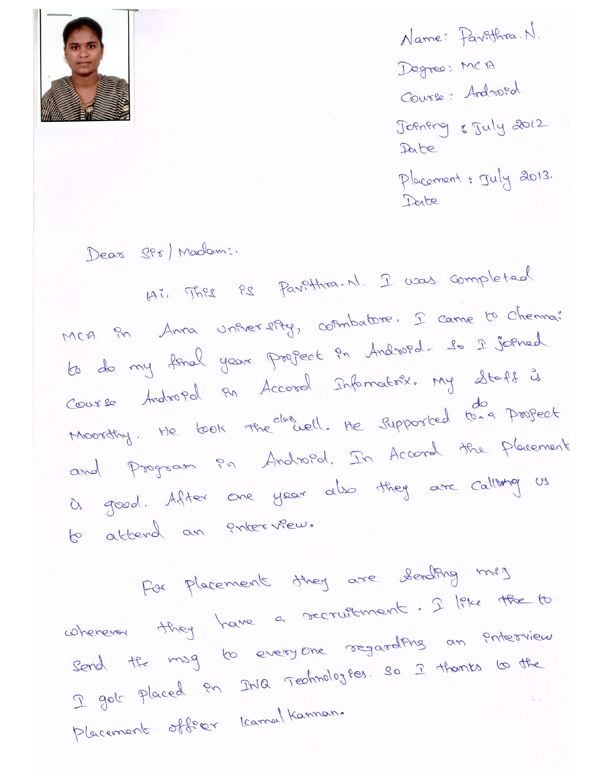 Name: Pavithra.N.
Degree: MCA
Course: Android.
Joining : July 2012
Date
Placement : July 2013.
Date
Dear Sir/Madam:.
Hi, This is Pavithra.N. I was completed
MCA in Anna university, coimbatore. I came to Chennai
to do my final year project in Android. So I joined
Course Android in Accord Infomatrix. My Staff is
Moorthy. He took the class well. He Supported to do a Project
and Program in Android. In Accord the Placement
is good. After one year also they are Calling us
to attend an interview.
For Placement they are Sending msg
whenever they have a recruitment. I like the to
Send the msg to everyone regarding an interview
I got Placed in INQ Technologies. So I thanks to the
Placement officer Kamal Kannan.